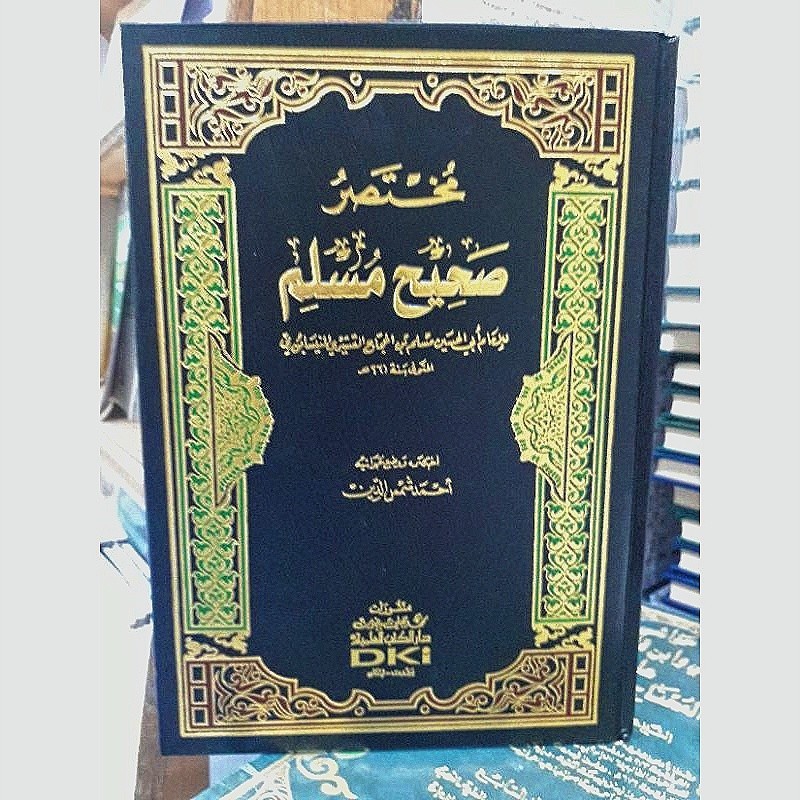 مُخْتَصَرُ
صَحِيْح مُسْلِم
للإمام أبي الحسين مسلم بن الحجاج القشيري النيسابوري
المتوفى سنة ٢٦١ هـ
أحمد شمس الدين
منشورات
محمد علي بيضون
دار الكتب العلمية
DKi